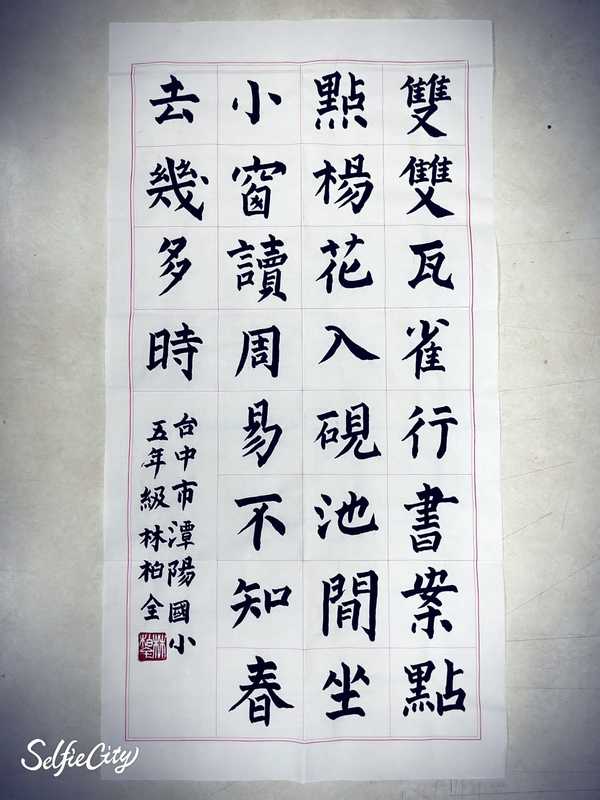 雙雙瓦雀行書案點
點楊花入硯池間坐
小窗讀周易不知春
去幾多時
台中市潭陽國小
五年級林柏全
SelfieCity